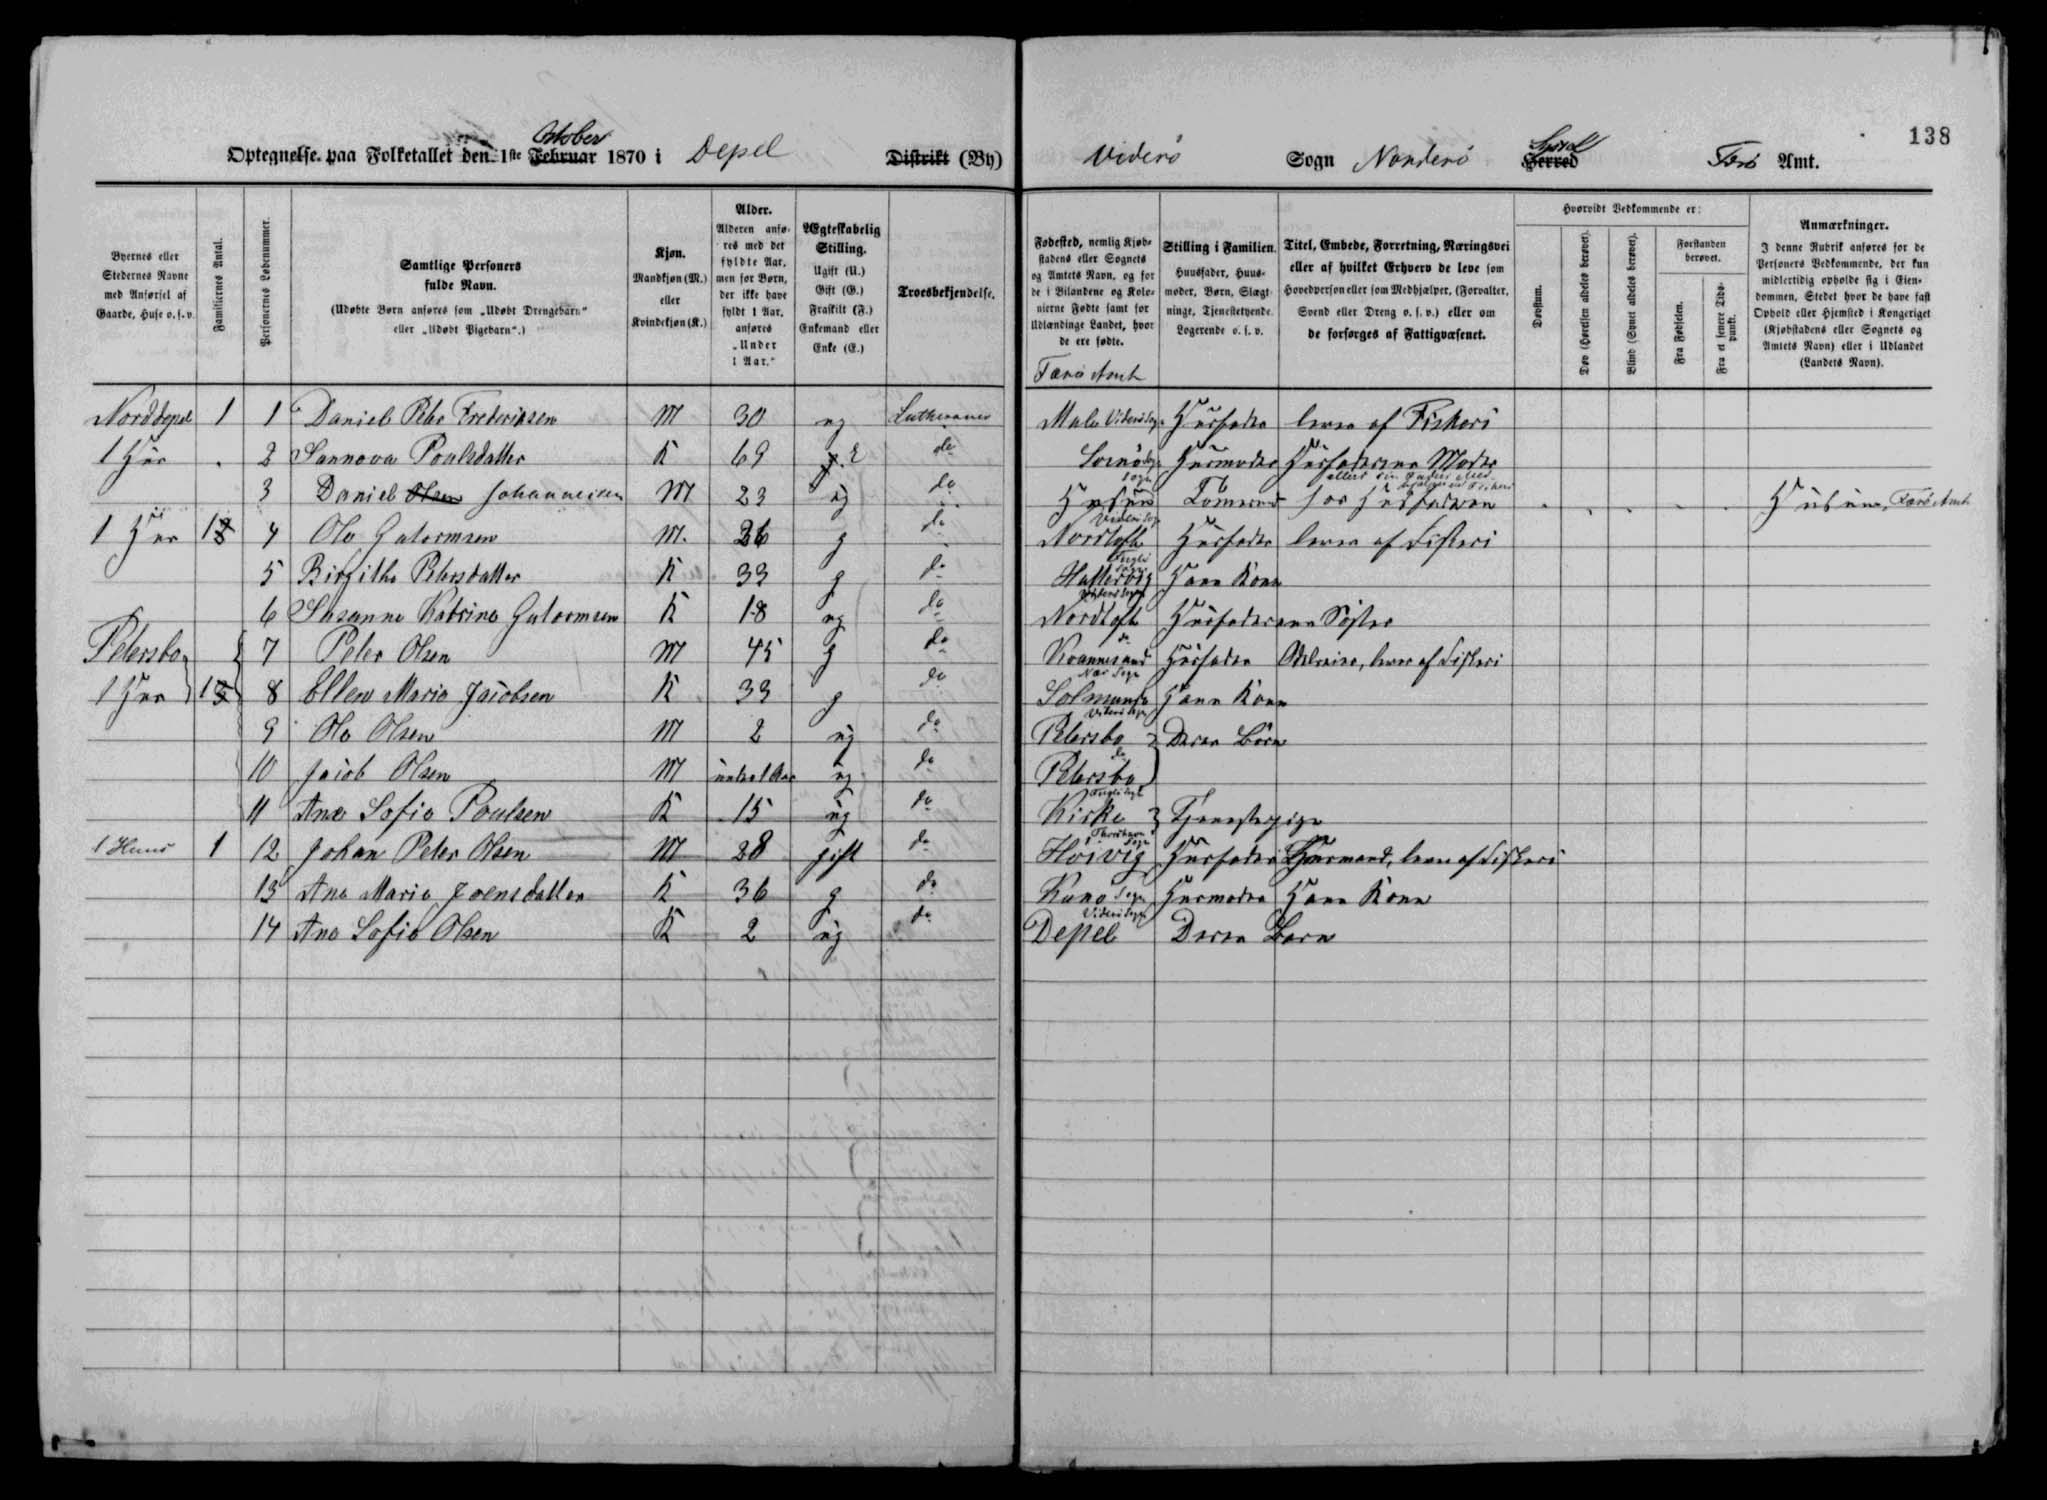 138
October
Optegnelse paa Folketallet den 1ste Februar 1870 i Depel Distrikt (By)
Viderø Sogn Norderø Syssel Herred Færø Amt.
Byernes eller Stedernes Navne med Anførsel af Gaarde, Huse o. s. v.
Familiernes Antal.
Personernes Løbenummer.
Samtlige Personers fulde Navn.
(Udøbte Børn anføres som „Udøbt Drengebarn“ eller „Udøbt Pigebarn“.)
Kjøn.
Mandkjøn (M.) eller Kvindekjøn (K.)
Alder.
Alderen anføres med det fyldte Aar, men for Børn, der ikke have fyldt 1 Aar, anføres „Under 1 Aar.“
Ægteskabelig Stilling.
Ugift (U.)
Gift (G.)
Fraskilt (F.)
Enkemand eller Enke (E.)
Troesbekjendelse.
Fødested, nemlig Kjøbstadens eller Sognets og Amtets Navn, og for de i Bilandene og Kolonierne Fødte samt for Udlændinge Landet, hvor de ere fødte.
Færø Amt
Stilling i Familien.
Huusfader, Huusmoder, Børn, Slægtninge, Tjenestetyende, Logerende o. s. v.
Titel, Embede, Forretning, Næringsvei eller af hvilket Erhverv de leve som Hovedperson eller som Medhjælper, (Forvalter, Svend eller Dreng o. s. v.) eller om de forsørges af Fattigvæsenet.
Hvorvidt Vedkommende er:
Døvstum.
Døv (Hørelsen aldeles berøvet).
Blind (Synet aldeles berøvet).
Forstanden berøvet.
Fra Fødselen.
Fra et senere Tidspunkt.
Anmærkninger.
I denne Rubrik anføres for de Personers Vedkommende, der kun midlertidig opholde sig i Eiendommen, Stedet hvor de have fast Ophold eller Hjemsted i Kongeriget (Kjøbstadens eller Sognets og Amtets Navn) eller i Udlandet (Landets Navn).
Norddepel 1 1 Daniel Peter Frederiksen M 30 ug Lutheraner Mule Viderø Sogn Huusfader lever af Fiskeri
1 Huus 2 Sannova Poulsdatter K 69 E do Svinø Sogn Huusmoder Huusfaderens Moder
3 Daniel Olsen Johannesen M 23 ug do Husum Sogn Tømmermand hos Huusfaderen Husum, Færø Amt
1 Huus 1 4 Ole Gutormsen M. 26 g do Nordtofte Viderø Sogn Huusfader lever af Fiskeri
5 Birgithe Petersdatter K 33 g do Hattervig Fuglø Sogn Hans Kone
6 Susanne Katrine Gutormsen K 18 ug do Nordtofte Viderø Sogn Huusfaderens Søster
Petersbo 7 Peter Olsen M 45 g do Kvannesund do Huusfader Odelseier, lever af Fiskeri
1 Huus 1 8 Ellen Marie Jacobsen K 33 g do Solmunde Næs Sogn Hans Kone
9 Ole Olsen M 2 ug do Petersbo Viderø Sogn Deres Børn
10 Jacob Olsen M under 1 Aar ug do Petersbo do
11 Ane Sofie Poulsen K 15 ug do Kirke Fuglø Sogn Tjenestepige
1 Huus 1 12 Johan Peter Olsen M 28 gift do Hoivig Thorshavn Sogn Huusfader Huusmand, lever af Fiskeri
13 Ane Marie Joensdatter K 36 g do Kunø Sogn Huusmoder Hans Kone
14 Ane Sofie Olsen K 2 ug do Depel Viderø Sogn Deres Barn